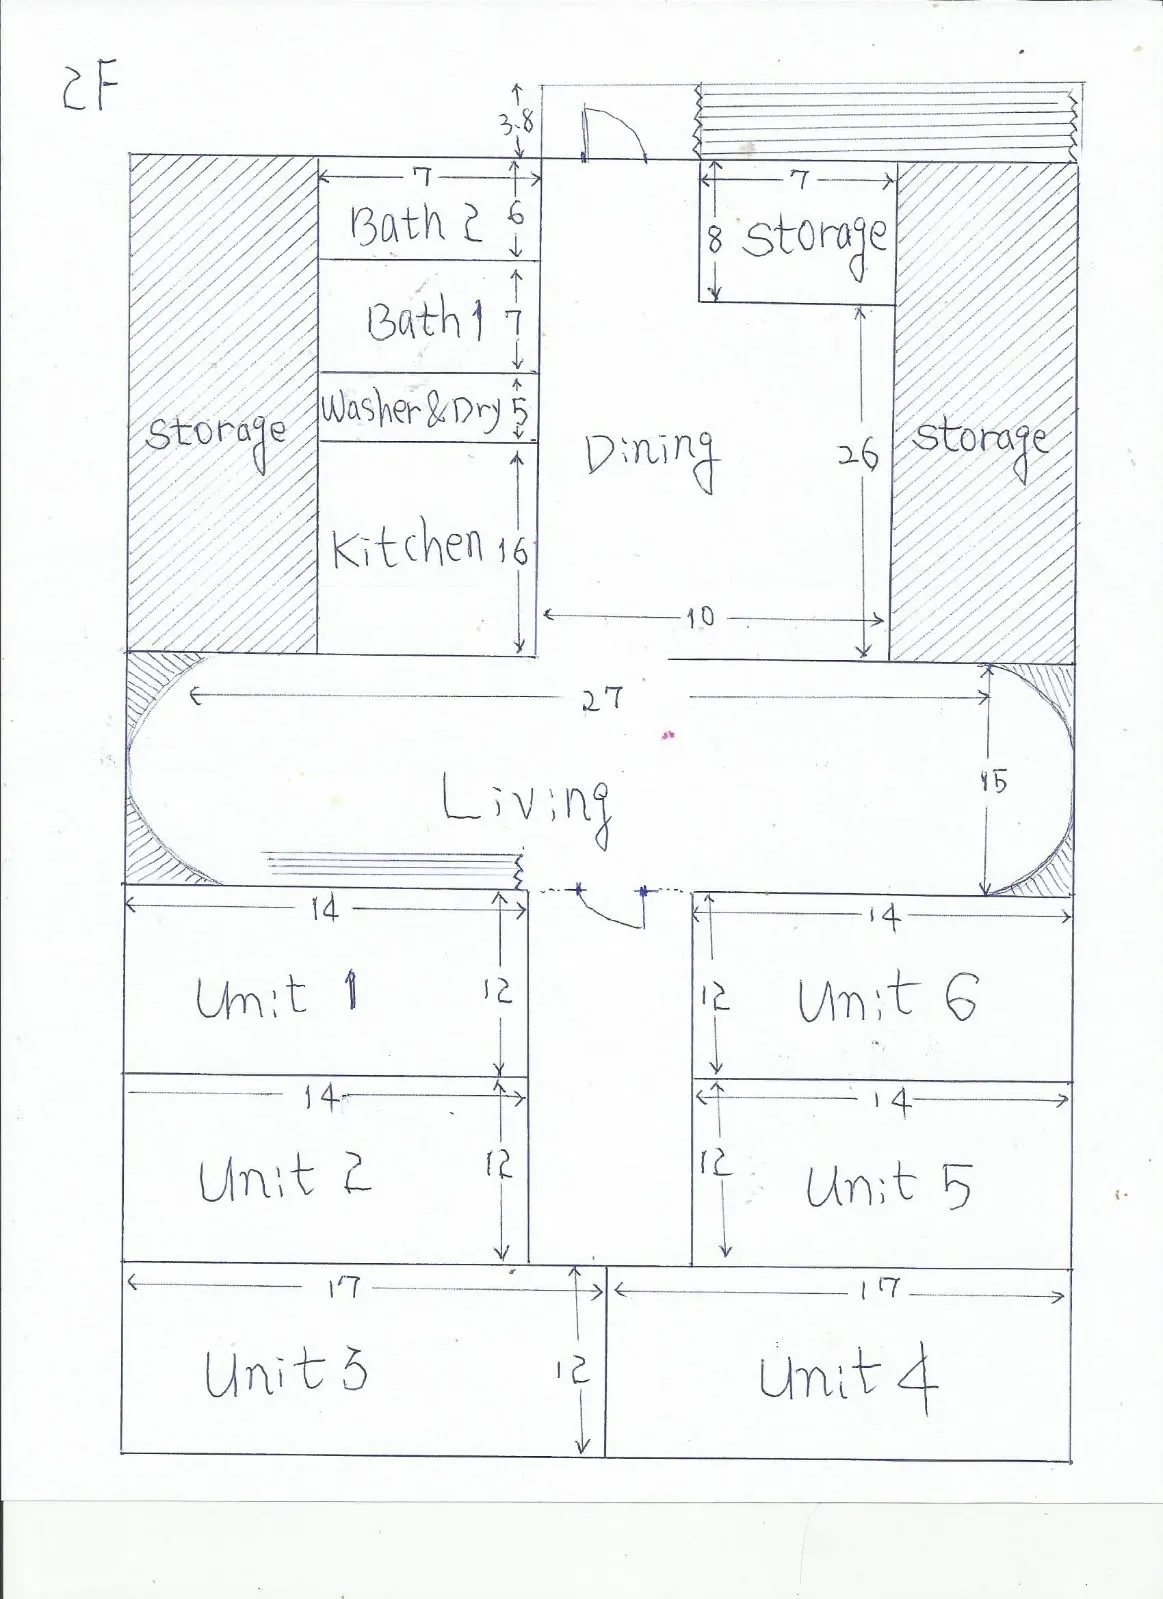 2F
3.8
7
7
Bath 2
6
8
Storage
Bath 1
7
Washer & Dry
5
Storage
Dining
26
Storage
Kitchen
16
10
27
Living
15
14
14
Unit 1
12
12
Unit 6
14
14
Unit 2
12
12
Unit 5
17
17
Unit 3
12
Unit 4